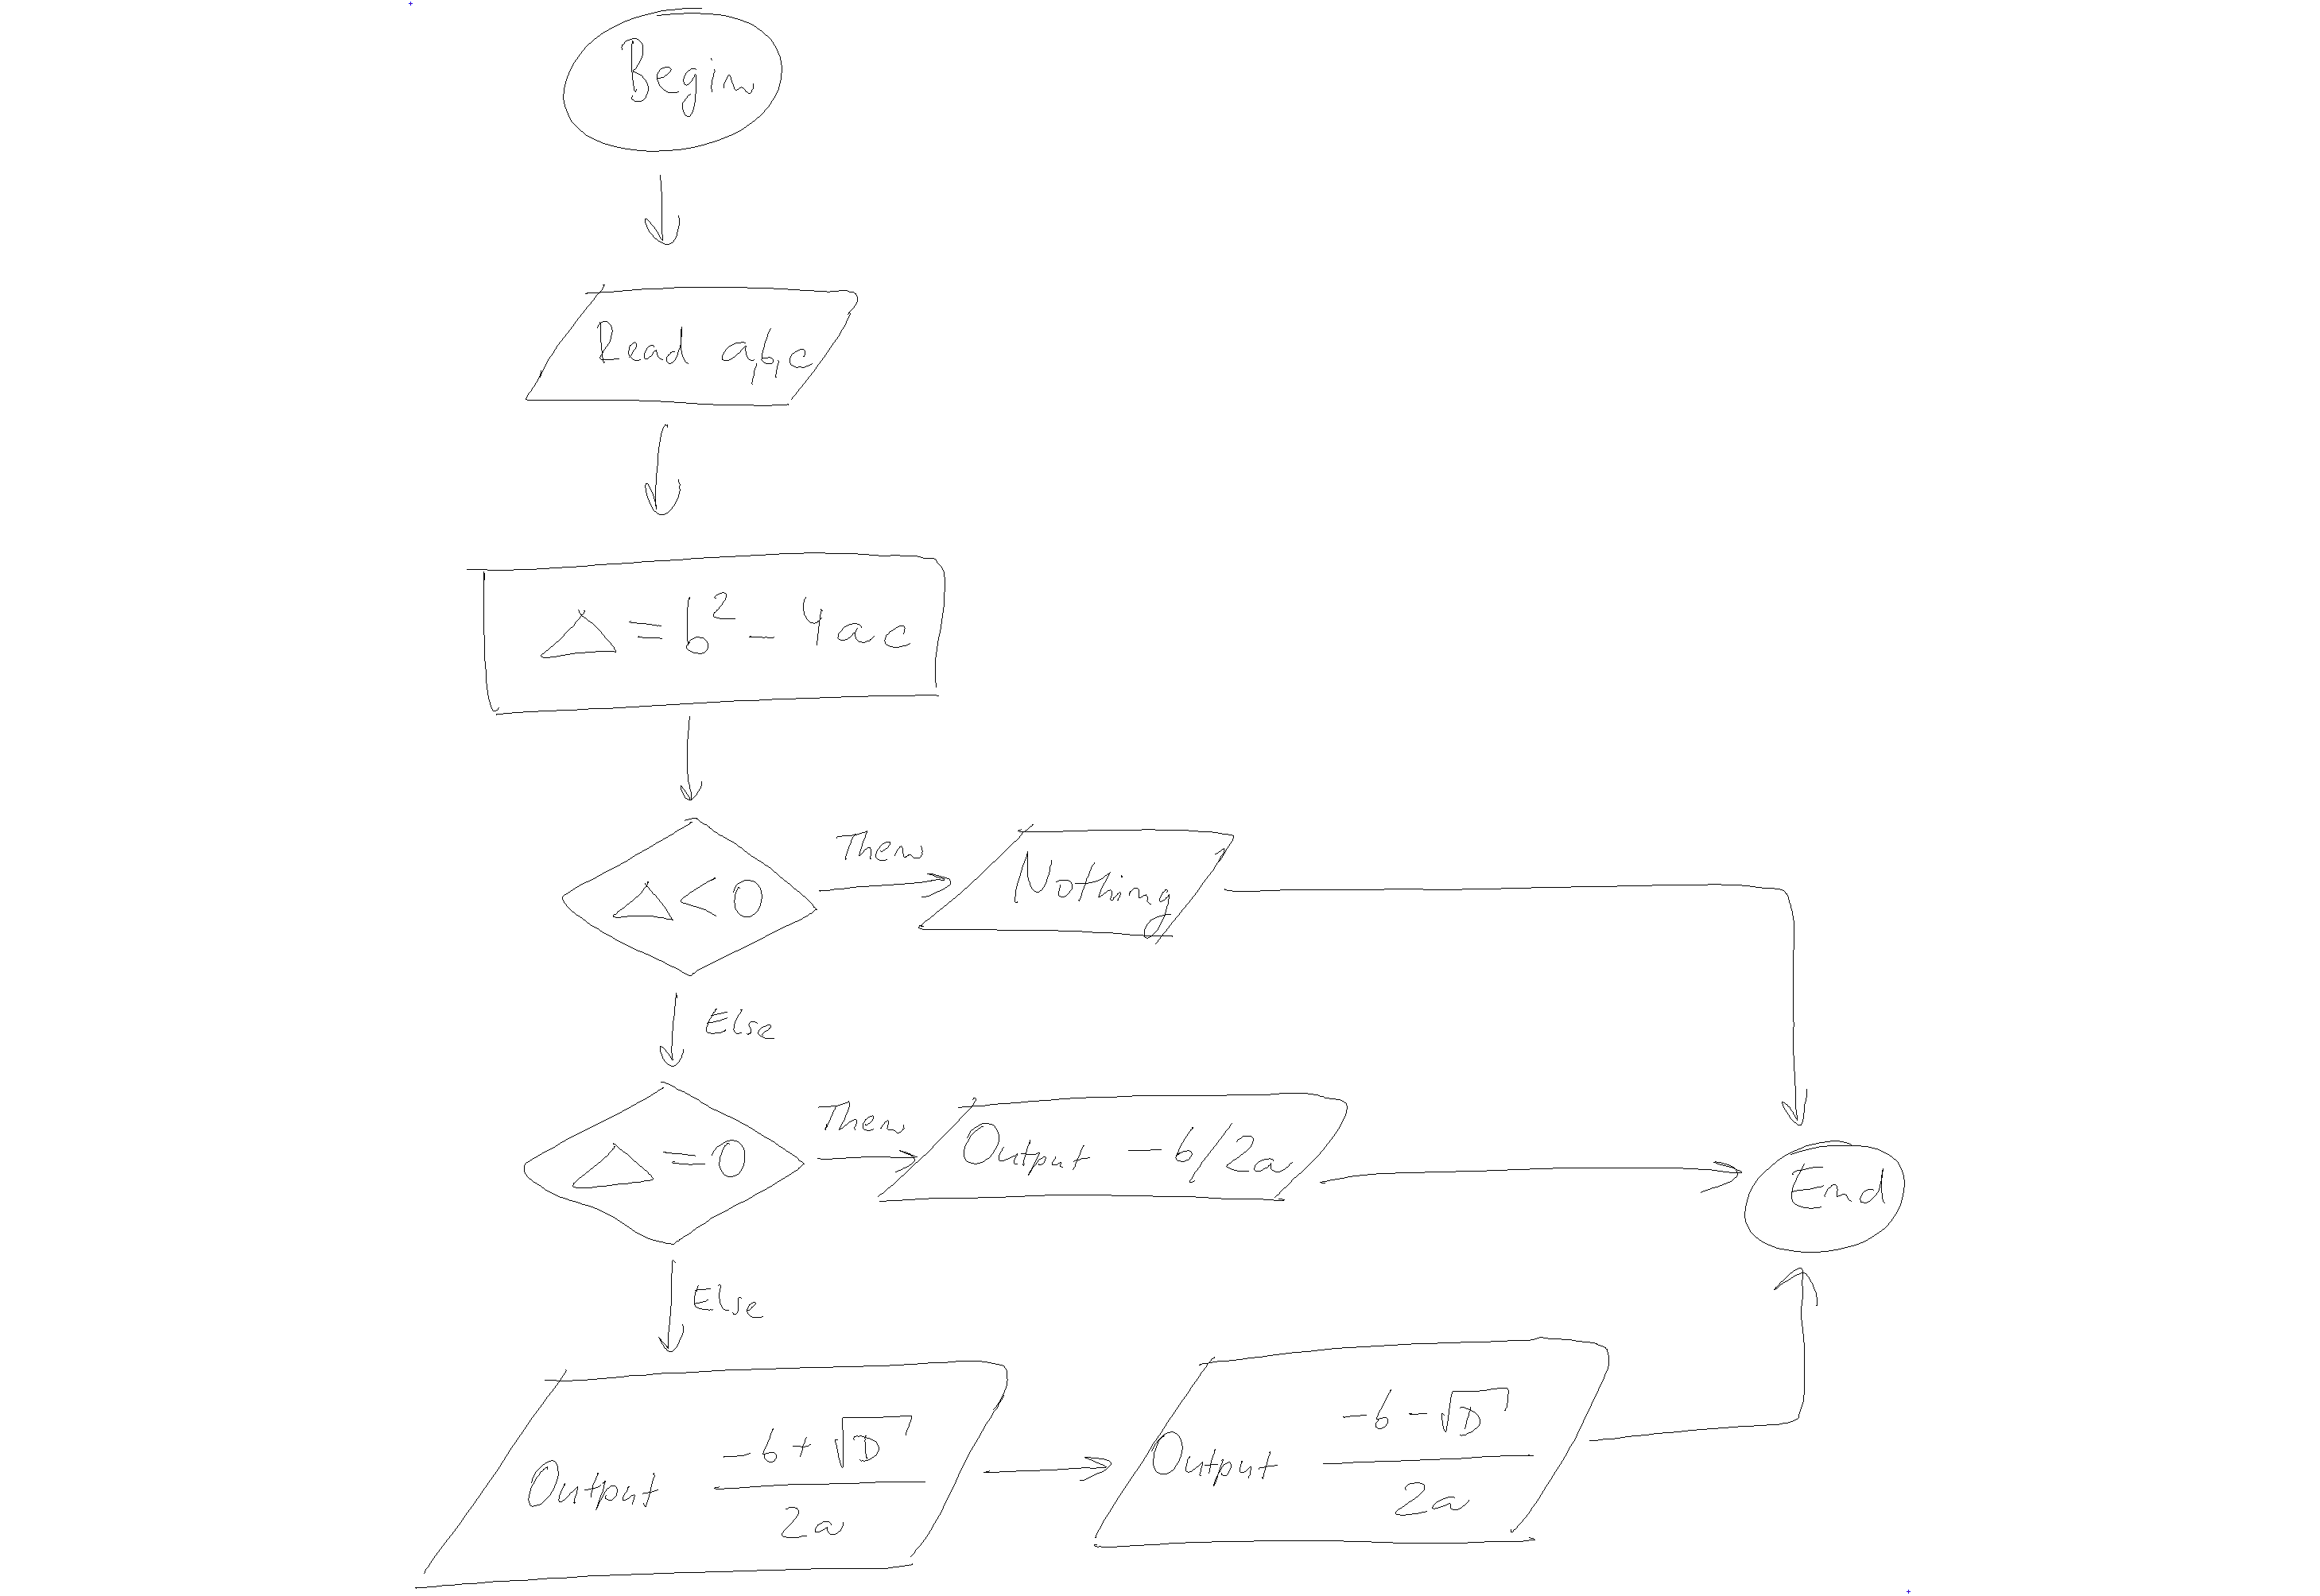 Begin
Read a,b,c
Δ = b² - 4ac
Δ < 0
Then
Nothing
Else
Δ = 0
Then
Output - b/2a
End
Else
Output (-b + √D) / 2a
Output (-b - √D) / 2a